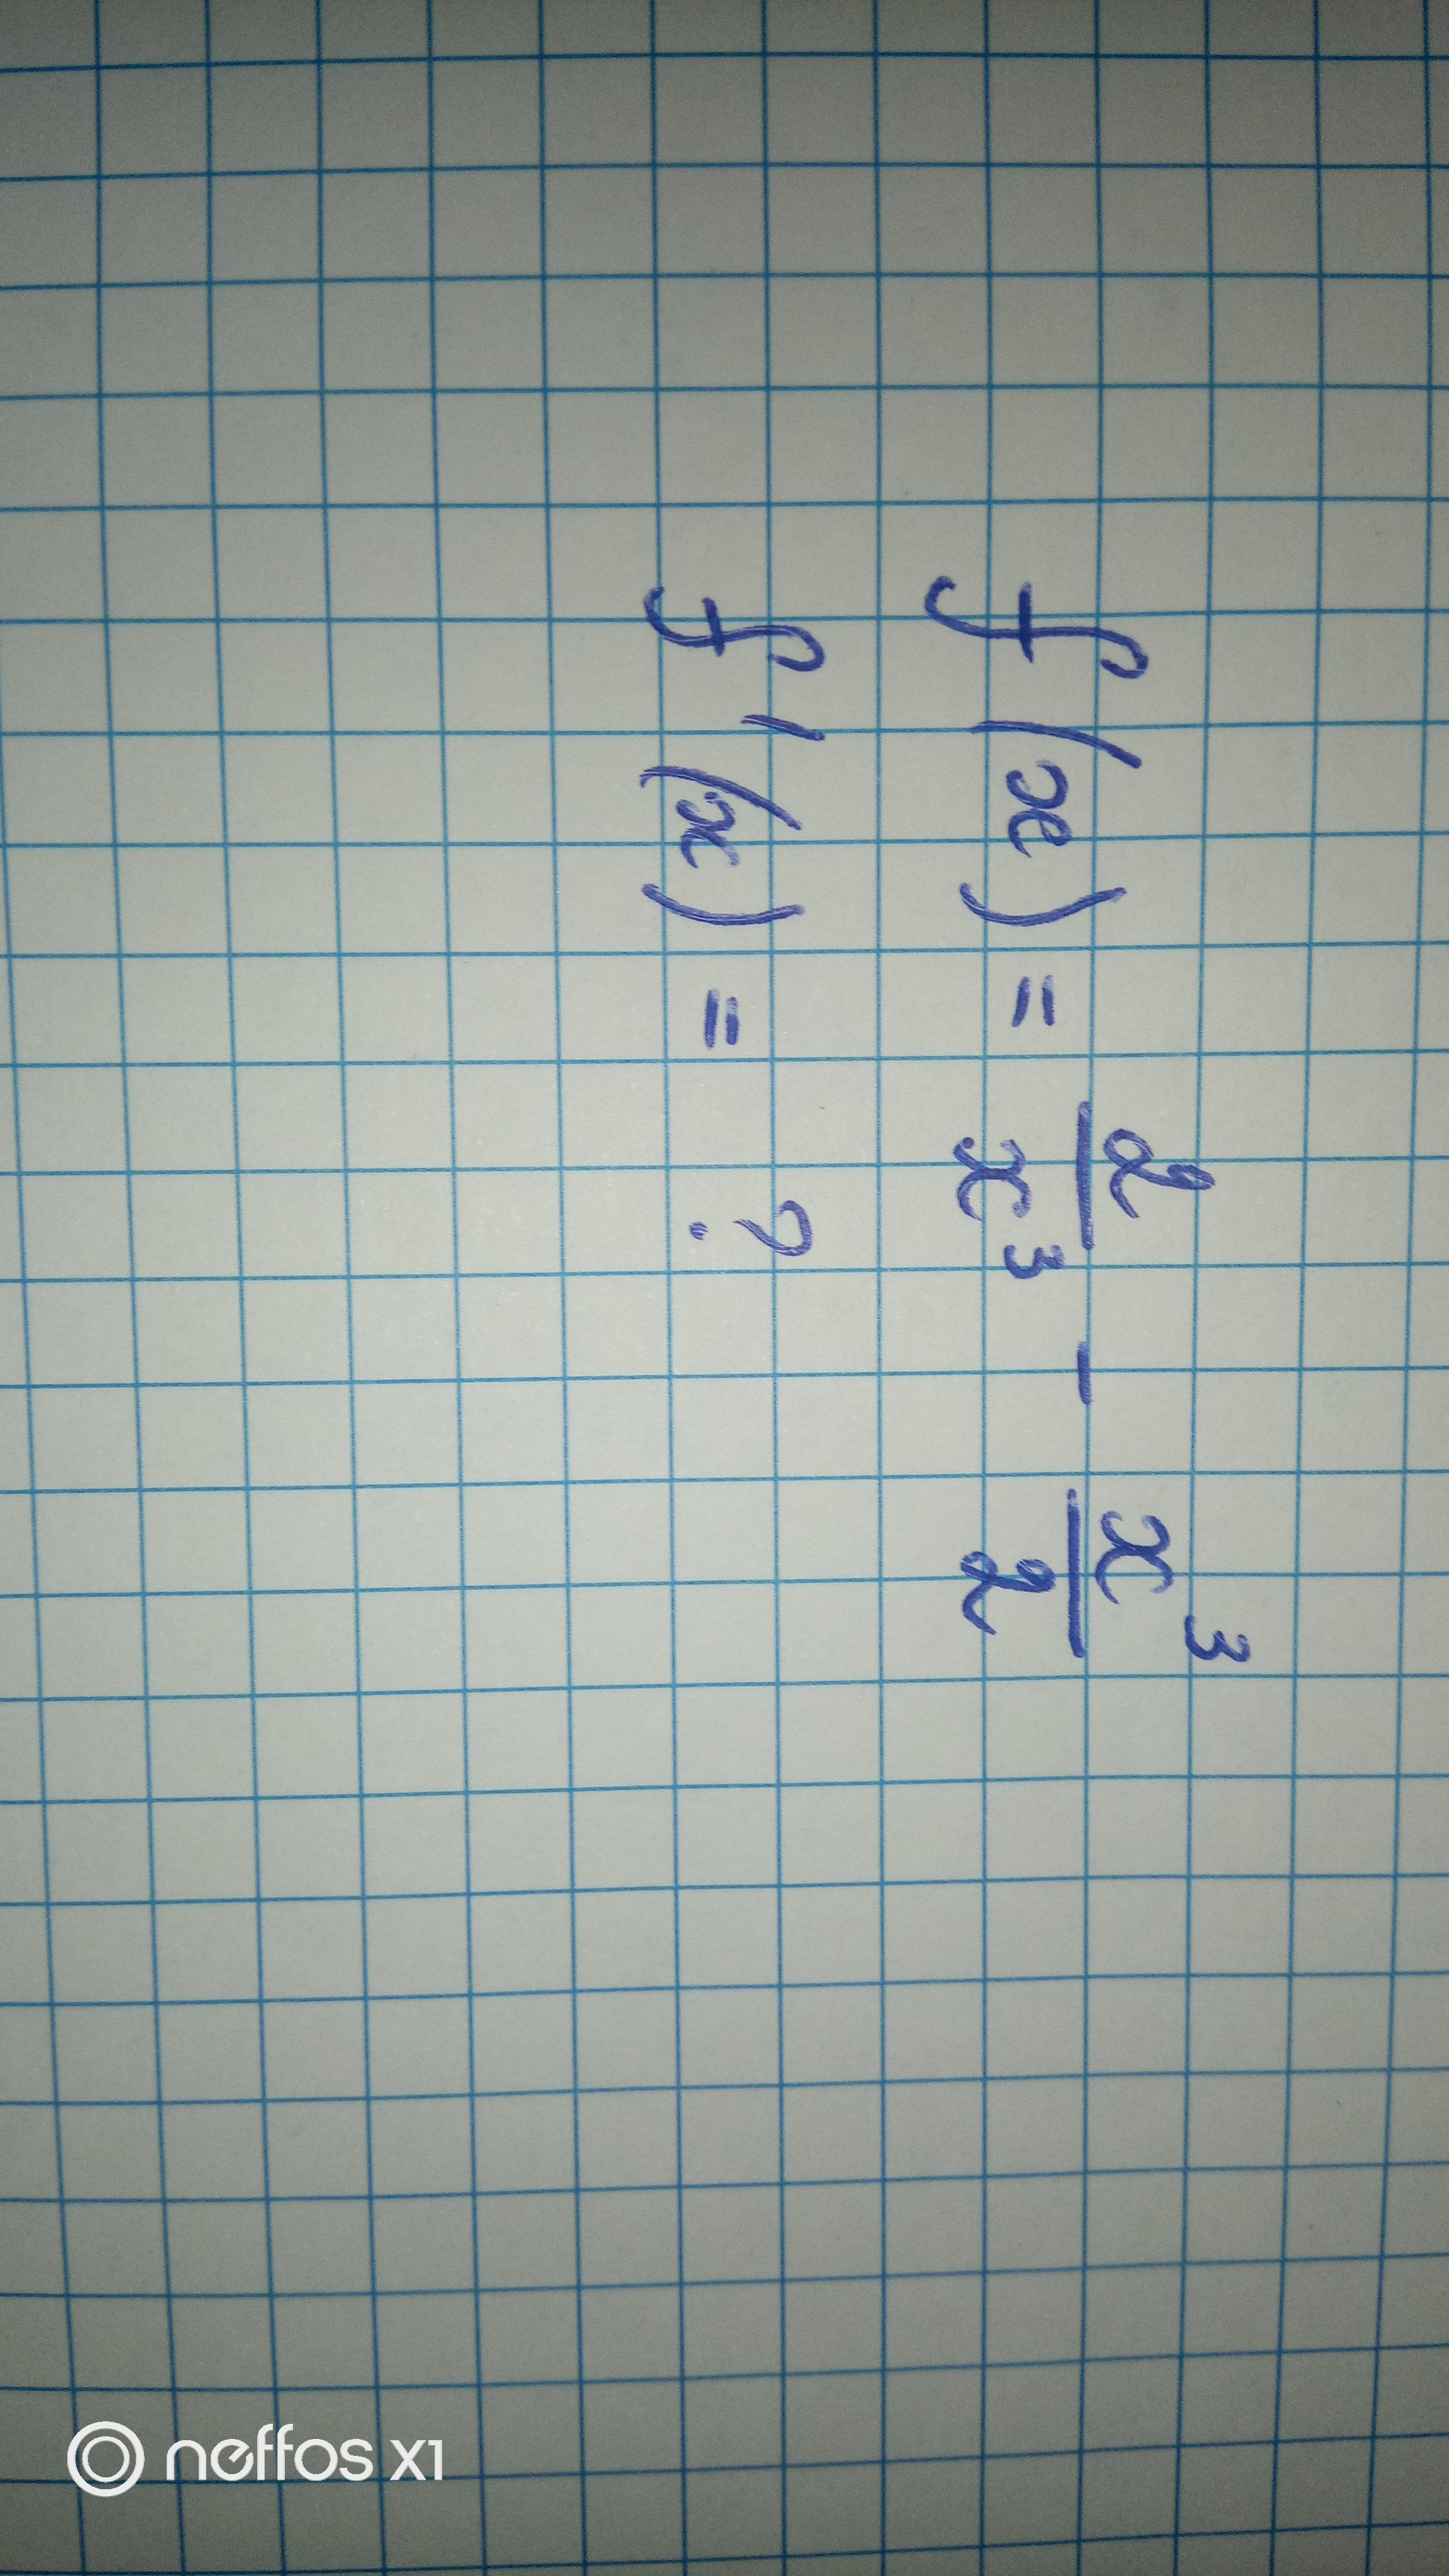 f(x) = 2/x³ - x³/2
f'(x) = ?
neffos x1